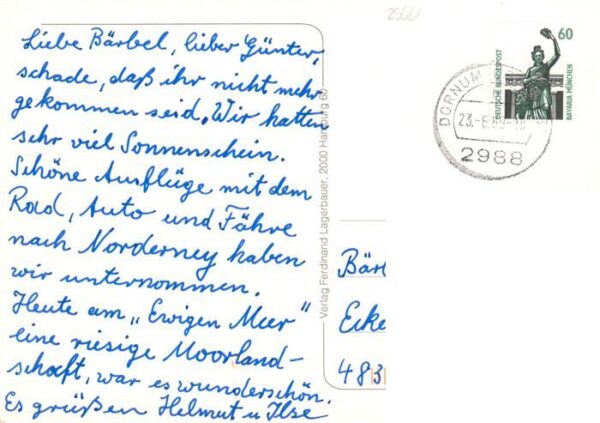 Liebe Bärbel, lieber Günter,
schade, daß ihr nicht mehr
gekommen seid. Wir hatten
sehr viel Sonnenschein.
Schöne Ausflüge mit dem
Rad, Auto und Fähre
nach Norderney haben
wir unternommen.
Heute am „Ewigen Meer"
eine riesige Moorland-
schaft, war es wunderschön.
Es grüßen Helmut u Ilse
Verlag Ferdinand Lagerbauer, 2000 Hamburg 80
60
DEUTSCHE BUNDESPOST
BAVARIA MÜNCHEN
DORNUM
2988
Bärb
Ecke
483